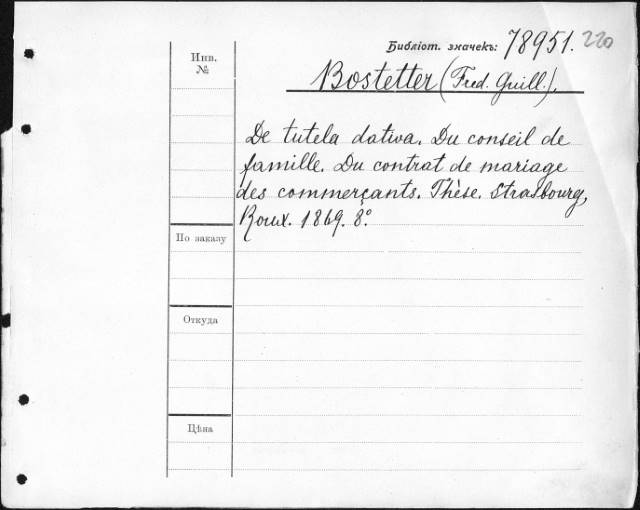 Библіот. значекъ: 78951. 220
Инв.
№
Bostetter (Fred. Guill.).
De tutela dativa. Du conseil de
famille. Du contrat de mariage
des commerçants. Thèse. Strasbourg,
Roux. 1869. 8°
По заказу
Откуда
Цѣна